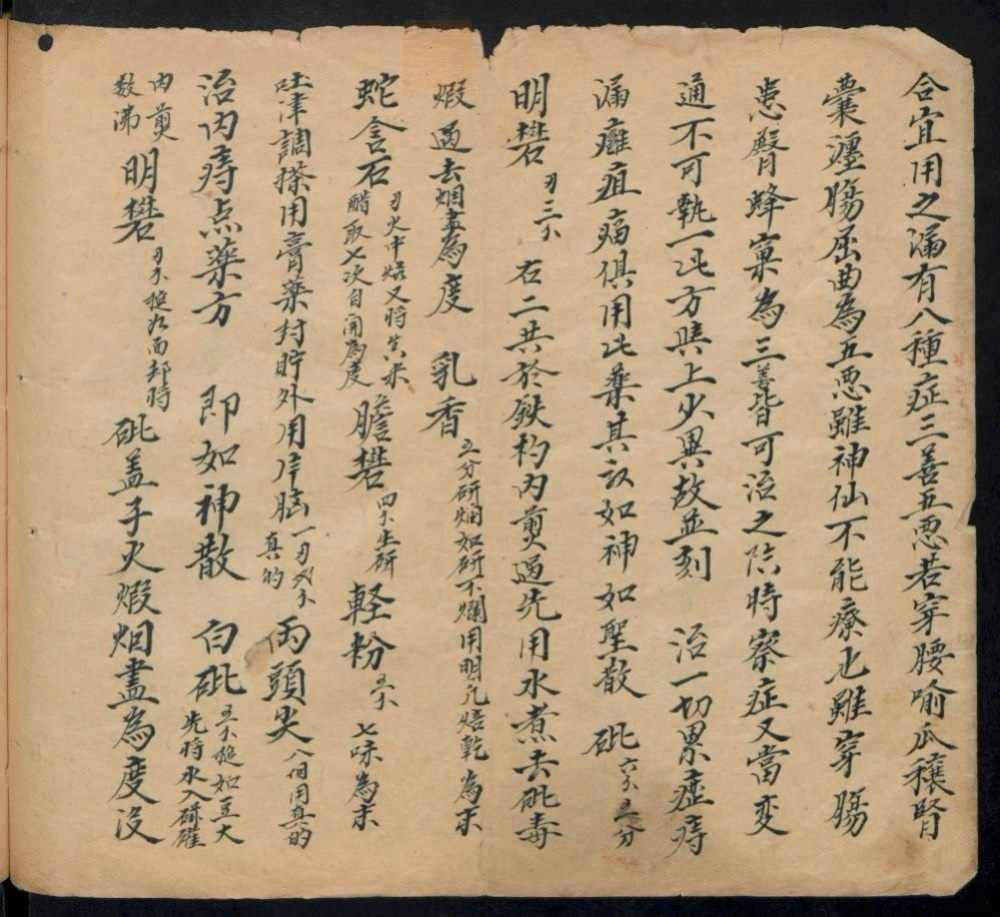 合宜用之漏有八種症三善五恶若穿腰喻瓜穰腎
囊瀍腸屈曲為五恶雖神仙不能療也雖穿腸
患臀蜂窠為三善皆可治之臨時察症又當变
通不可執一此方與上少異故並刻　治一切累症痔
漏癰疽瘑俱用此藥其効如神如聖散　砒六个五分
明礬刄三个　右二共於鉄杓內煎過先用水煮去砒毒
煆過去烟盡為度　乳香五分研烟如研不爛用明瓦焙乾為末
蛇含石刄火中煅又將真米醋取七次自開為度　膽礬四个生研　軽粉五个　七味為末
吐津調搽用膏藥封貯外用片脑一刄外个真的　両頭尖八個用真的
治內痔点藥方　即如神散　白砒五个搥如豆大先將水入
內煎数沸　明礬刄不搥九面却時　砒盖子火煆烟盡為度沒